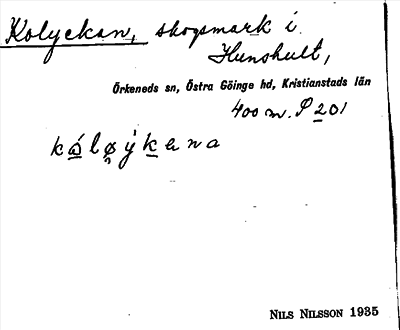 Kolyckan, skogsmark i
Hunshult,
Örkeneds sn, Östra Göinge hd, Kristianstads län
400 m. S 201
NILS NILSSON 1935